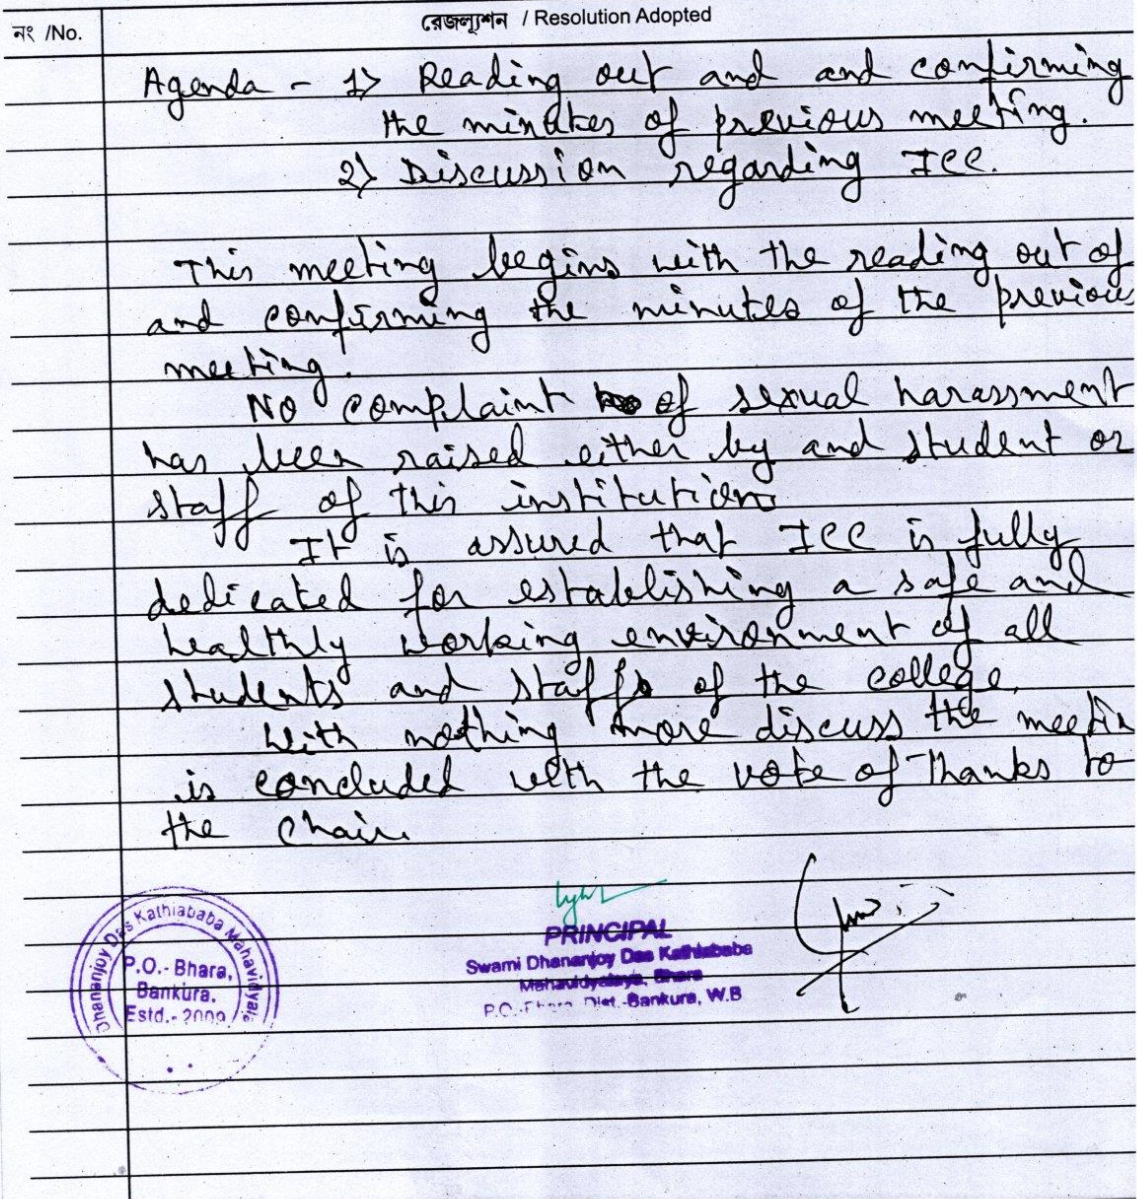 নং /No.
রেজল্যুশন / Resolution Adopted
Agenda - 1> Reading out and and confirming
the minutes of previous meeting.
2> Discussion regarding ICC.
This meeting begins with the reading out of
and confirming the minutes of the previous
meeting.
No complaint of sexual harassment
has been raised either by and student or
staff of this institution
It is assured that ICC is fully
dedicated for establishing a safe and
healthly working environment of all
students and staffs of the college.
With nothing more discuss the meetin
is concluded with the vote of Thanks to
the Chair.
Dhananjoy Das Kathiababa Mahavidyala
P.O.- Bhara,
Bankura.
Estd.- 2009
PRINCIPAL
Swami Dhananjoy Das Kathiababa
Mahavidyalaya, Bhara
P.O.-Bhara, Dist.-Bankura, W.B